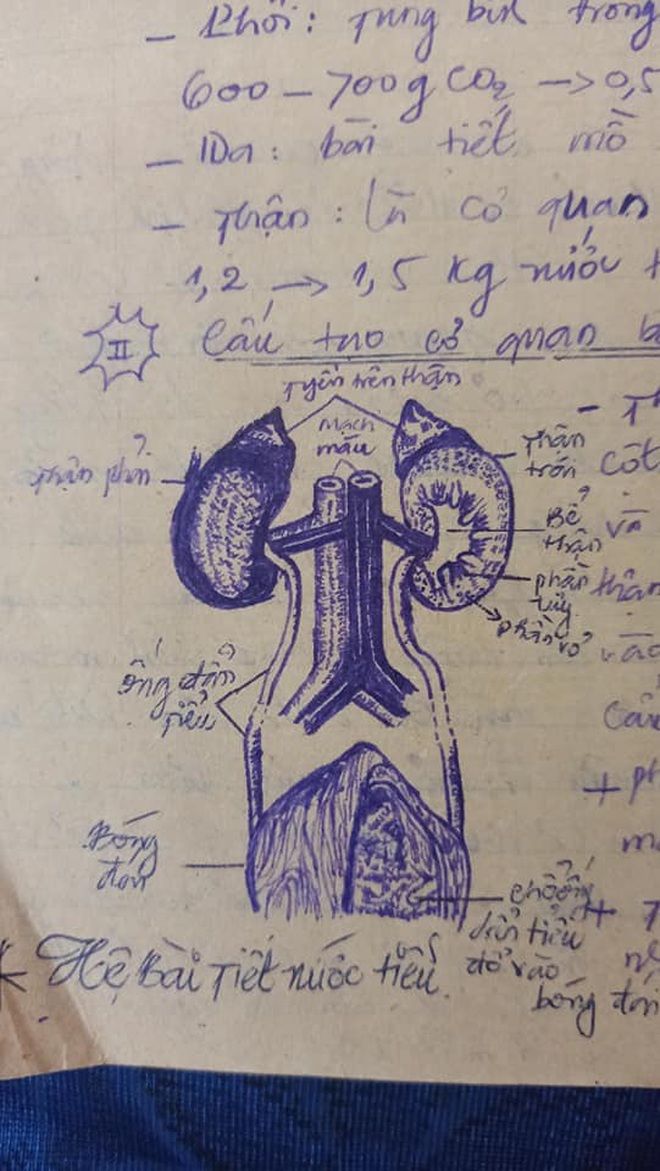 - Phổi: Trung bình trong
600 - 700g CO₂ -> 0,5
- Da: bài tiết mồ
- Thận: là cơ quan
1,2 -> 1,5 Kg nước t
II Cấu tạo cơ quan b
Tuyến trên thận
Mạch
máu
Thận phải
Thận
trái
Bể
thận
phần
tủy
phần vỏ
Ống dẫn
tiểu
Bóng
đái
Chỗ ống
dẫn tiểu
đổ vào
bóng đái
- Th
cột
và
thận
vào
Cấu
+ ph
m
+ T
* Hệ Bài Tiết nước tiểu.